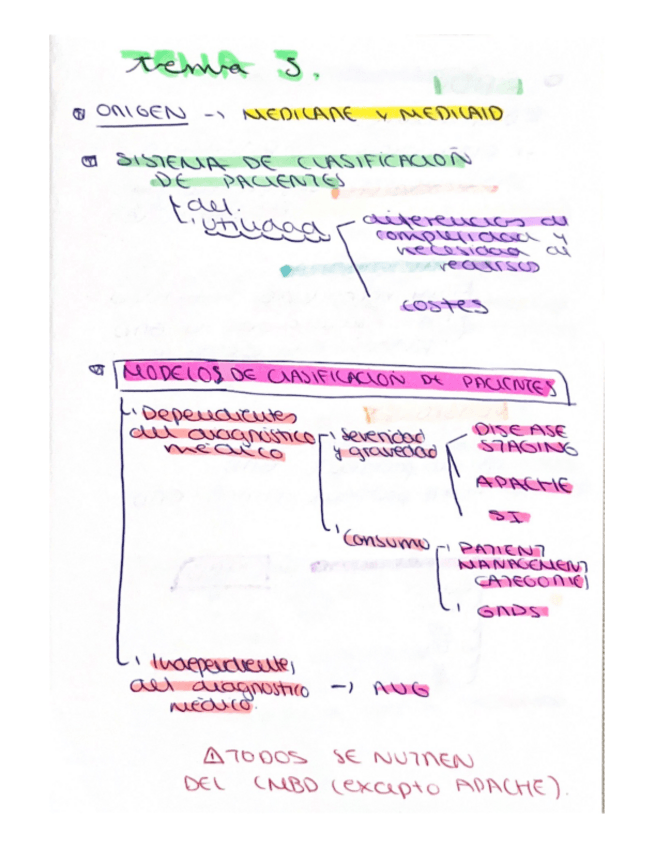 tema 3.
ORIGEN → MEDICARE Y MEDICAID
SISTEMA DE CLASIFICACION
DE PACIENTES
def.
utilidad
diferencias de
complejidad y
necesidad de
recursos
costes
MODELOS DE CLASIFICACION DE PACIENTES
Dependientes
del diagnóstico
médico
Severidad
y gravedad
DISEASE
STAGING
APACHE
SI
Consumo
PATIENT
MANAGEMENT
CATEGORIES
GRDS
Independientes
del diagnostico
médico.
→
⚠ TODOS SE NUTREN
DEL CMBD (excepto APACHE).